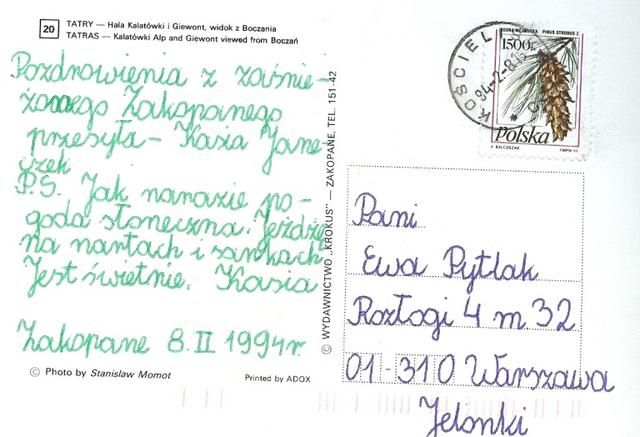 20 TATRY — Hala Kalatówki i Giewont, widok z Boczania
TATRAS — Kalatówki Alp and Giewont viewed from Boczań
Pozdrowienia z zaśnie-
żonego Zakopanego
przesyła - Kasia Jane-
czek
P.S. Jak narazie po-
goda słoneczna. Jeżdżę
na nartach i sankach
Jest świetnie. Kasia
Zakopane 8.II 1994r.
© Photo by Stanisław Momot
Printed by ADOX
© WYDAWNICTWO „KROKUS" — ZAKOPANE, TEL. 151-42
PINUS STROBUS L.
1500 zł
Polska
KOŚCIEL
94-2-8
Pani
Ewa Pytlak
Rozłogi 4 m 32
01-310 Warszawa
Jelonki